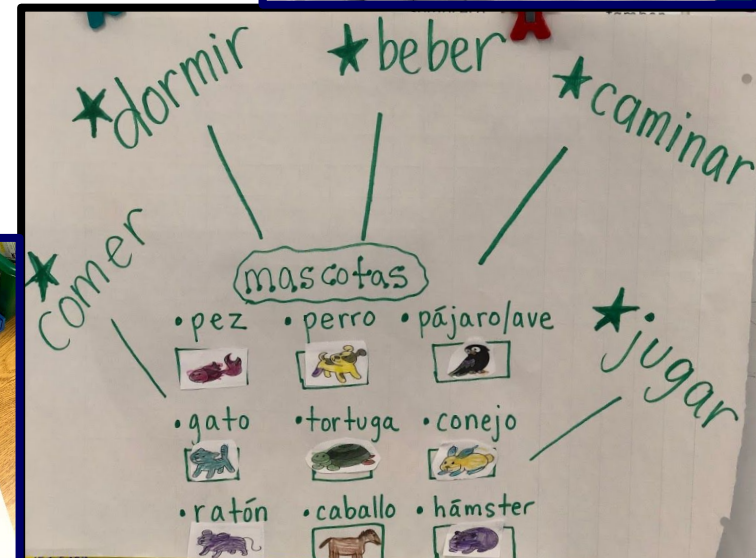 ★dormir
★beber
★caminar
★comer
mascotas
★jugar
•pez •perro •pájaro/ave
•gato •tortuga •conejo
•ratón •caballo •hámster